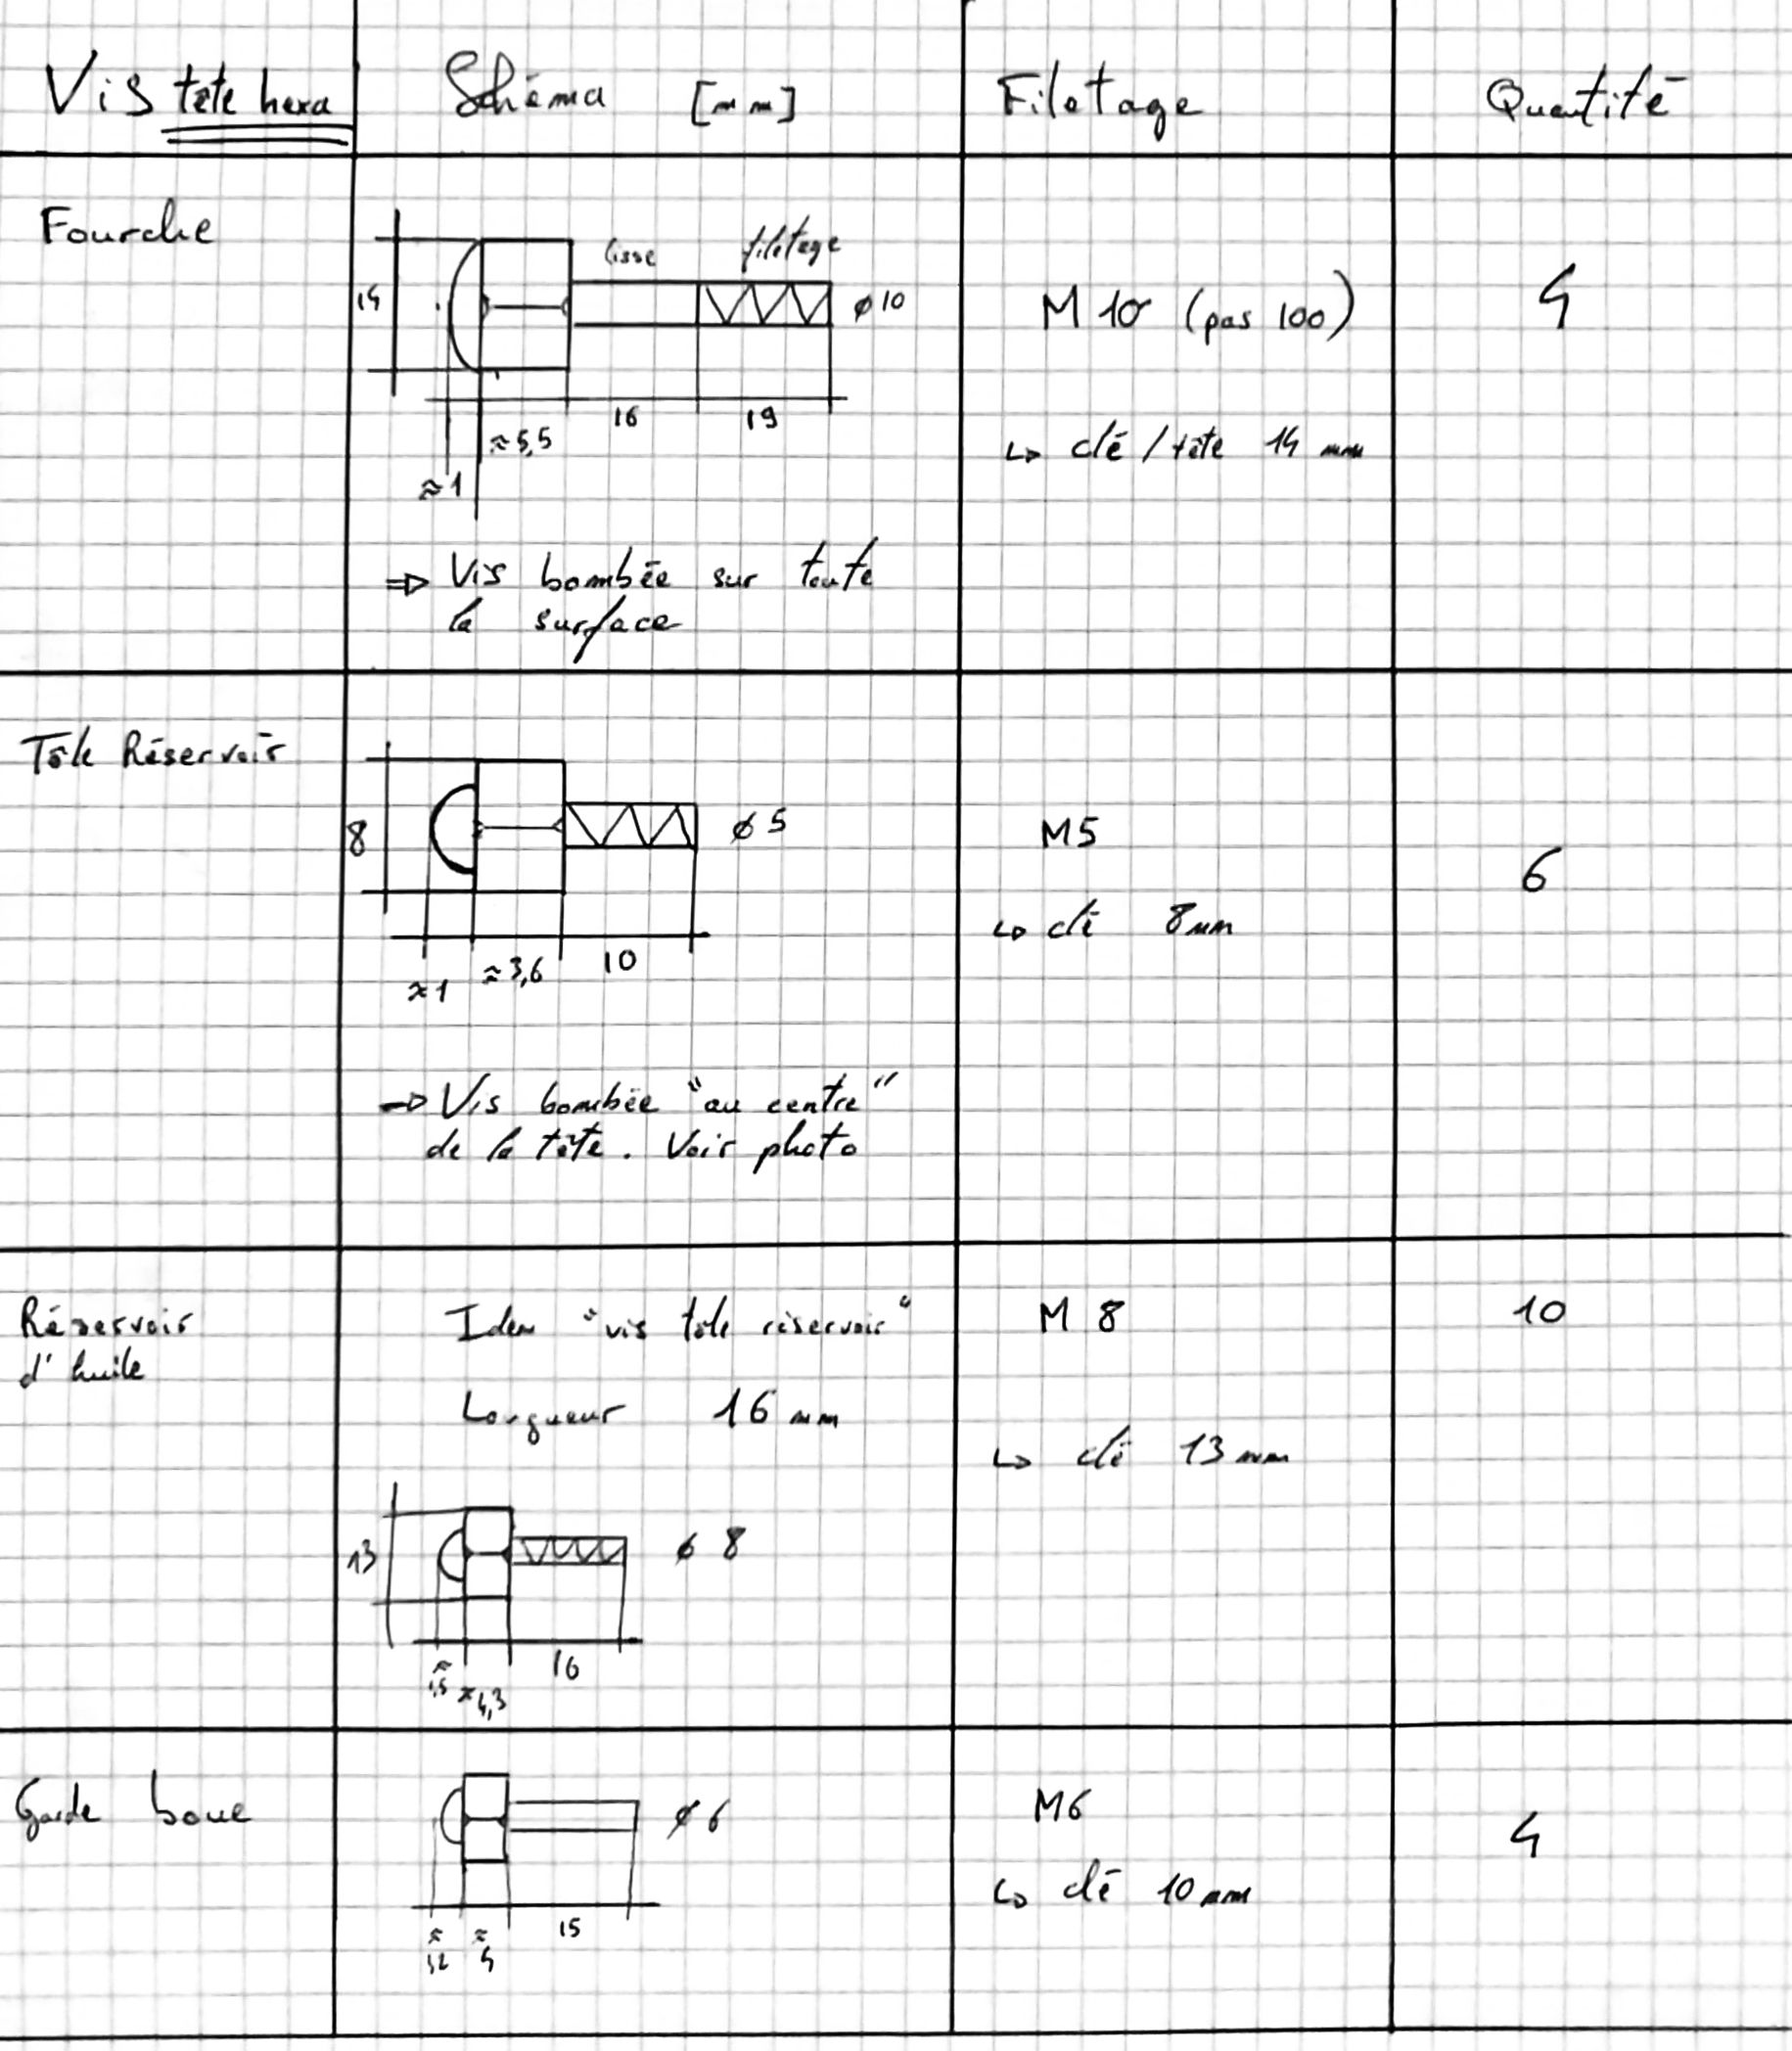 Vis tête hexa
Schéma [mm]
Filetage
Quantité
Fourche
lisse filetage
14
ø 10
16 19
≈ 5,5
≈ 1
⇒ Vis bombée sur toute
la surface
M 10 (pas 100)
↳ clé / tête 14 mm
4
Tôle Réservoir
8
ø 5
≈ 1 ≈ 3,6 10
→ Vis bombée "au centre"
de la tête. Voir photo
M5
↳ clé 8 mm
6
Réservoir
d'huile
Idem "vis tôle réservoir"
Longueur 16 mm
13
ø 8
≈ 1,5 ≈ 4,3 16
M 8
↳ clé 13 mm
10
Garde boue
ø 6
≈ 1,2 ≈ 4 15
M6
↳ clé 10 mm
4